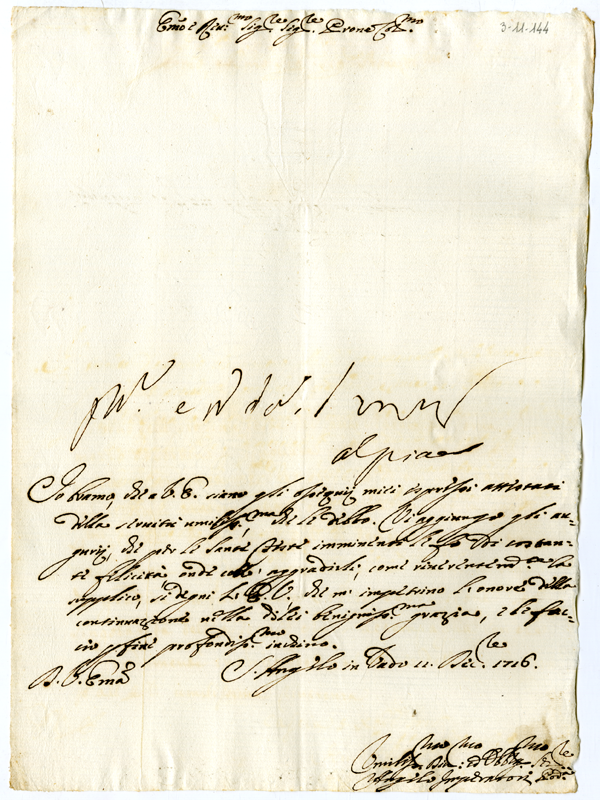 Em̃o e Rev.mo Sig.re Sig.re Prone Col.mo
3-11-144
al piac
Io bramo, che a V. E. siano gli ossequij miei espressi attestati
della servitù umiliss.ma che le debbo. Vi aggiungo gli au-
gurij, che per le Sante Feste imminenti le fo di costan-
te felicità, onde aggradirli, come riverentem.te la
supplico, si degni l'E. V. che m' impetrino l'onore della
continuazione nella di lei benigniss.ma grazia, e le fac-
cio p fine profondiss.mo inchino.
D. V. Em̃a
S. Angelo in Vado 11. Dic.re 1716.
Umiliss.mo Div.mo ed Obblig.mo Ser.re
Angelo Imperatori